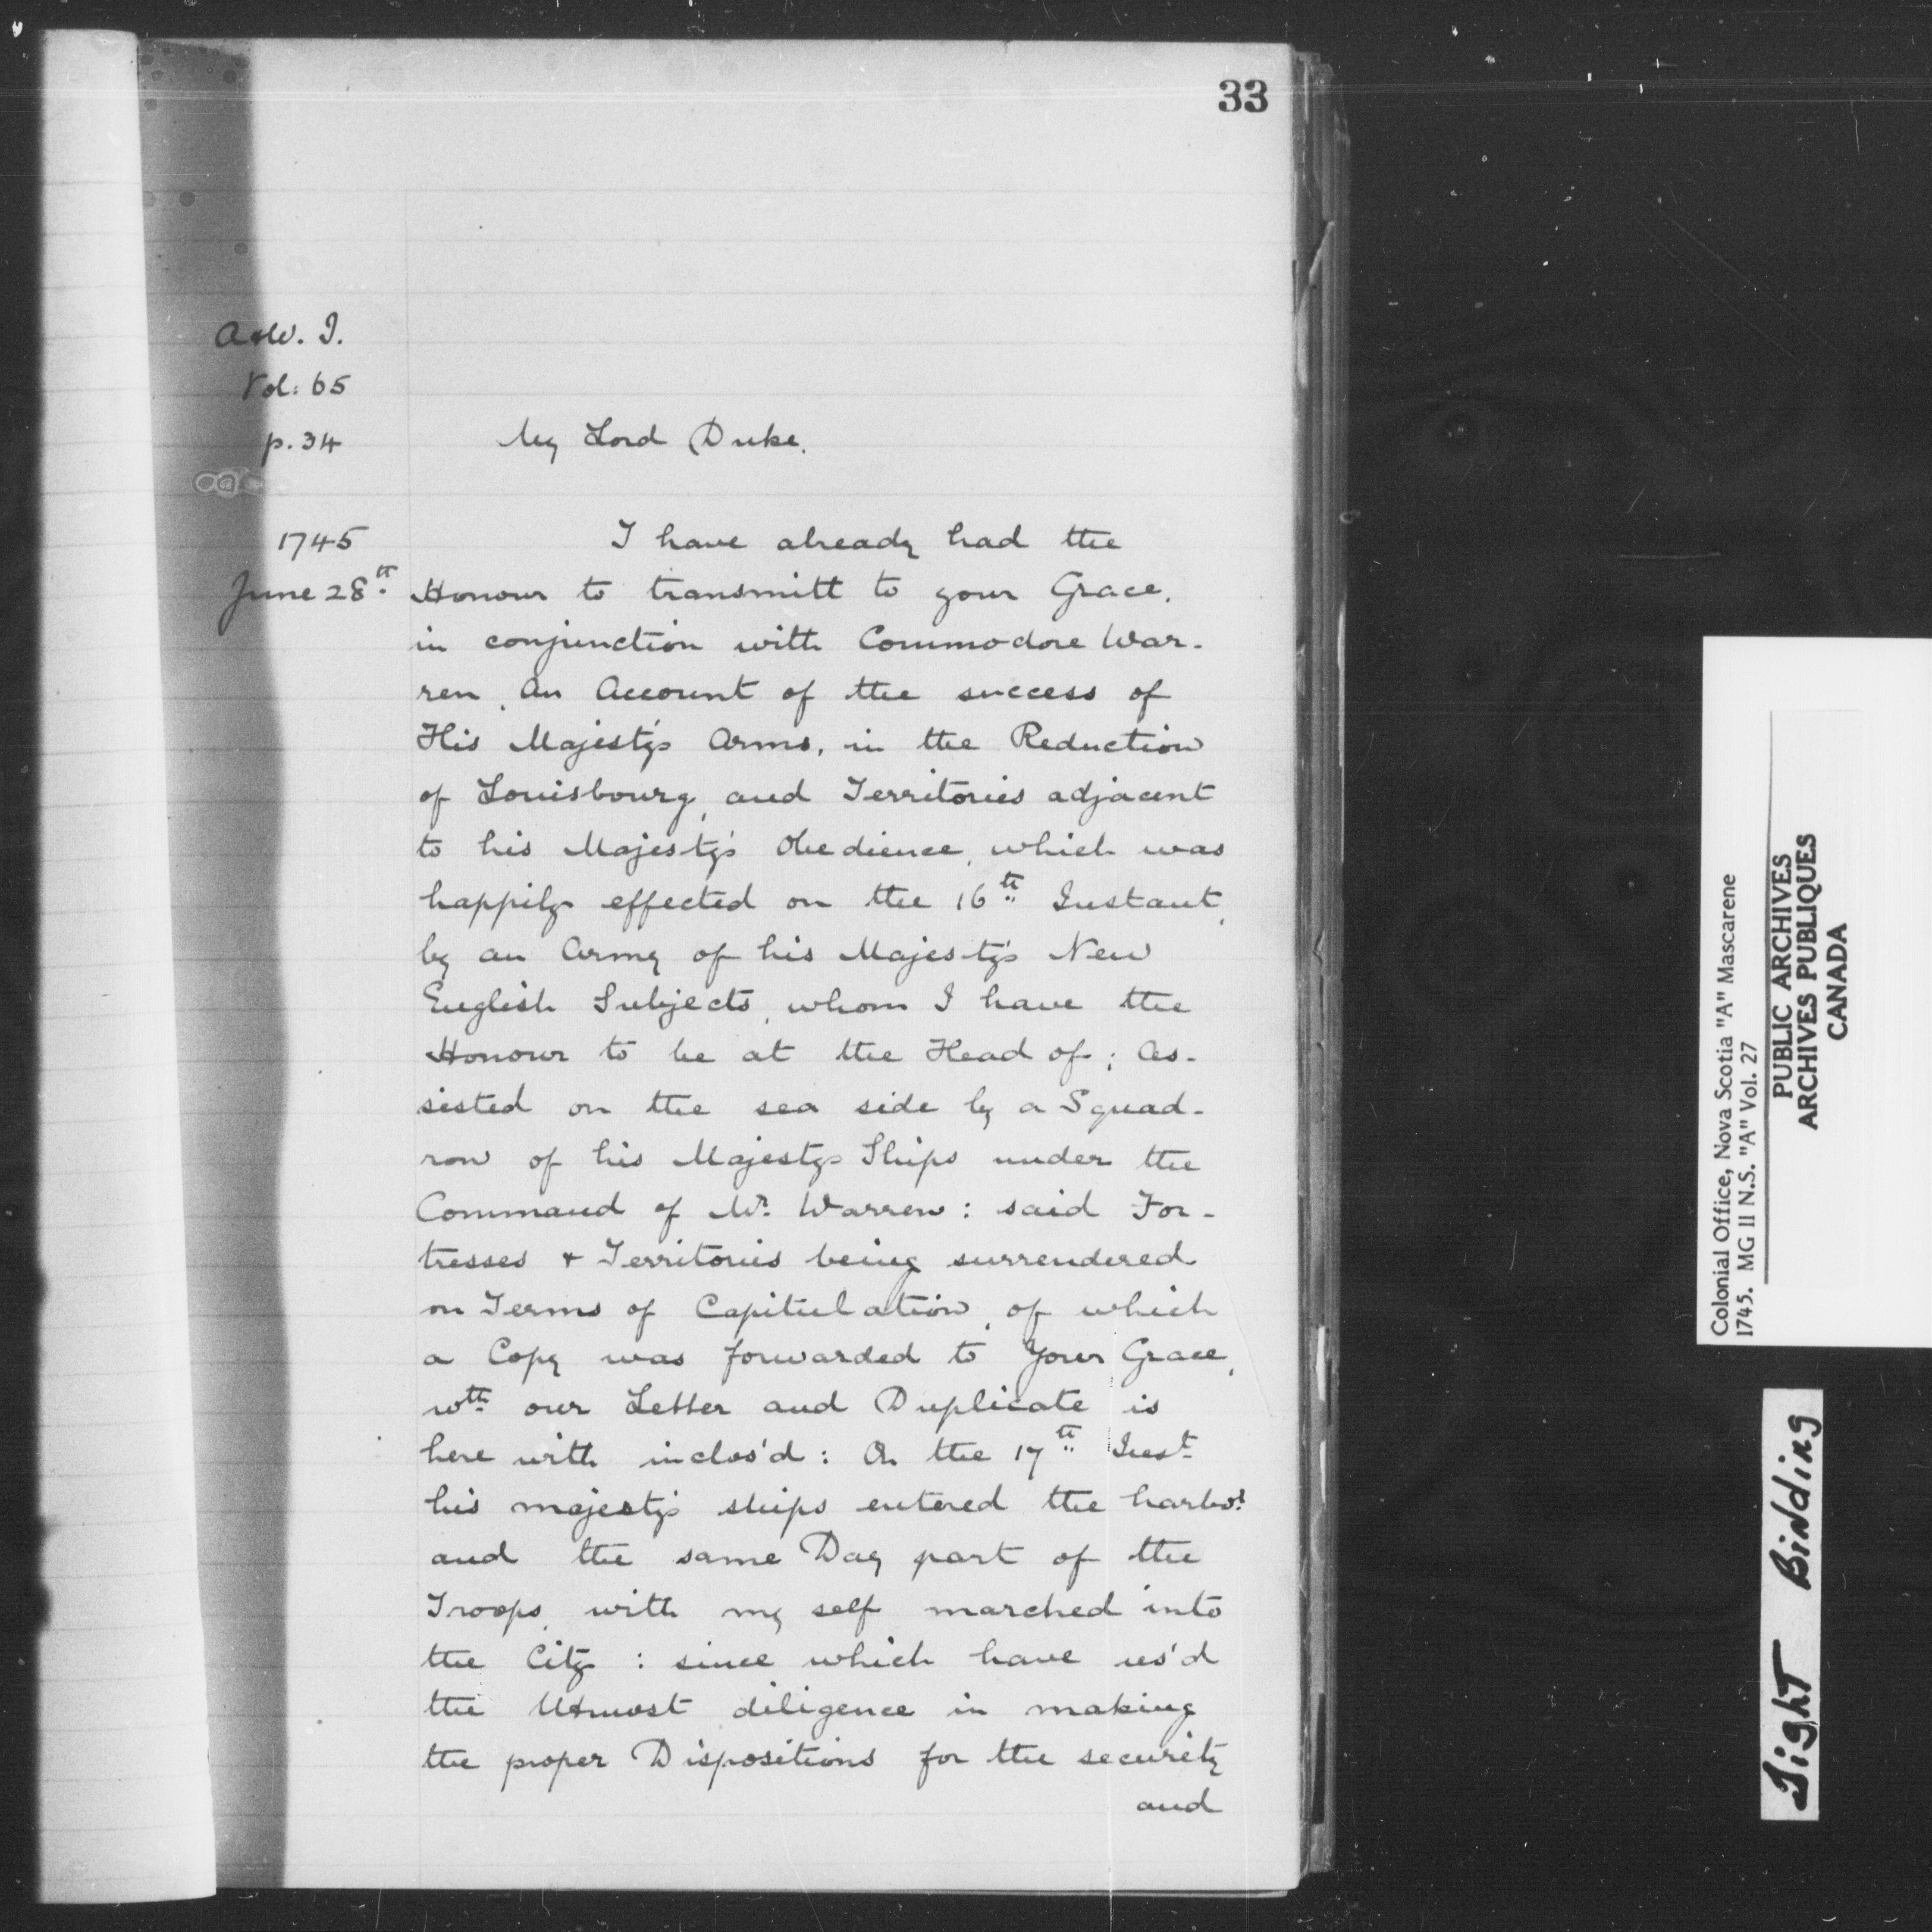 33
A & W. I.
Vol: 65
p. 34
My Lord Duke.
1745
June 28th
I have already had the
Honour to transmitt to your Grace,
in conjunction with Commodore War-
ren, An Account of the success of
His Majesty's Arms, in the Reduction
of Louisbourg, and Territories adjacent
to his Majesty's Obedience, which was
happily effected on the 16th Instant,
by an Army of his Majesty's New
English Subjects, whom I have the
Honour to be at the Head of; As-
sisted on the sea side by a Squad-
ron of his Majestys Ships under the
Command of Mr. Warren: said For-
tresses & Territories being surrendered
on Terms of Capitulation, of which
a Copy was forwarded to Your Grace,
wth our Letter and Duplicate is
here with inclos'd: On the 17th Inst
his majesty's ships entered the harbor
and the same Day part of the
Troops, with my self marched into
the City: since which have us'd
the Utmost diligence in making
the proper Dispositions for the security
and
Colonial Office, Nova Scotia "A" Mascarene
1745. MG II N.S. "A" Vol. 27
PUBLIC ARCHIVES
ARCHIVES PUBLIQUES
CANADA
Tight Binding